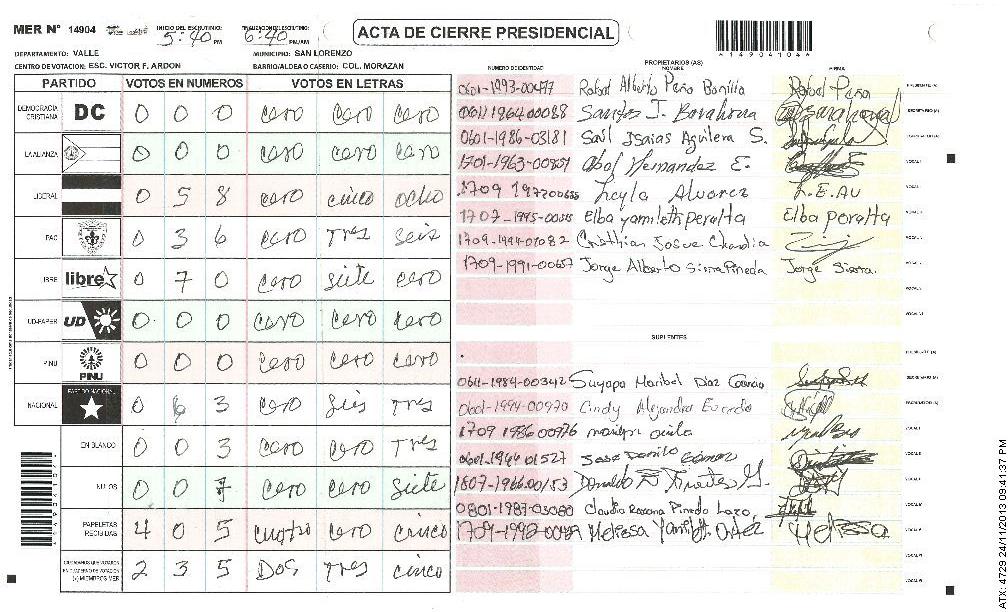 MER Nº 14904 INICIO DEL ESCRUTINIO: 5:40 PM FINALIZACION DEL ESCRUTINIO: 6:40 PM/AM ACTA DE CIERRE PRESIDENCIAL
*14904104*
DEPARTAMENTO: VALLE MUNICIPIO: SAN LORENZO
CENTRO DE VOTACION: ESC. VICTOR F. ARDON BARRIO/ALDEA O CASERIO: COL. MORAZAN
PARTIDO VOTOS EN NUMEROS VOTOS EN LETRAS
DEMOCRACIA CRISTIANA DC 0 0 0 cero cero cero
LA ALIANZA 0 0 0 cero cero cero
LIBERAL 0 5 8 cero cinco ocho
PAC 0 3 6 cero Tres seis
LIBRE libre 0 7 0 cero siete cero
UD-FAPER UD 0 0 0 cero cero cero
PINU PINU 0 0 0 cero cero cero
NACIONAL PARTIDO NACIONAL 0 6 3 cero seis Tres
EN BLANCO 0 0 3 cero cero Tres
NULOS 0 0 7 cero cero siete
PAPELETAS RECIBIDAS 4 0 5 cuatro cero cinco
CIUDADANOS QUE VOTARON EN CUADERNO DE VOTACION (+) MIEMBROS MER 2 3 5 Dos Tres cinco
PROPIETARIOS (AS)
NUMERO DE IDENTIDAD NOMBRE FIRMA
Rafael Alberto Peña Bonilla Rafael Peña PRESIDENTE (A)
0611 1964 00088 Santos J. Barahona Barahona SECRETARIO (A)
0601-1986-03181 Saúl Isaias Aguilera S.
1701-1963-00801 Abel Hernandez E. VOCAL I
Leyla Alvarez L.E.AV
1707-1995-00515 Elba yamileth peralta Elba peralta
1709-1994-01082 Cristhian Josue Chandia
1709-1991-00657 Jorge Alberto Sierra Pineda Jorge Sierra.
SUPLENTES
PRESIDENTE (A)
0611-1984-00342 Suyapa Maribel Diaz SECRETARIO (A)
0601-1994-00970 Cindy Alejandra
1709 1986 00976
Jose Danilo Gomez
1807-1966-00153 Donaldo
0801-1987-03080 Claudia Roxana Pineda Lazo,
Melissa Yamileth Melissa
ATX: 4729 24/11/2013 09:41:37 PM